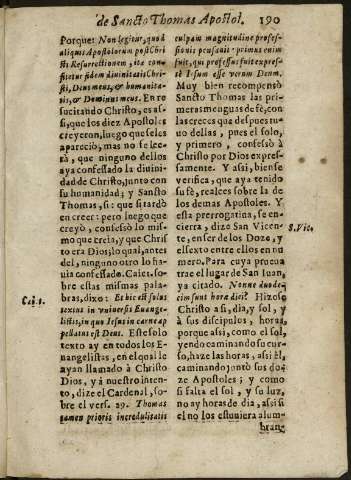 de Sancto Thomas Apostol. 190
Porque: Non legitur, quod
aliquis Apostolorum post Chri
sti Resurrectionem, ita con
fiteretur fidem diuinitatis Chri-
sti, Deus meus, & humanita-
tis, & Dominus meus. En re
sucitando Christo, es as-
si, que los diez Apostoles
creyeron, luego que se les
apareciò, mas no se lee-
rà, que ninguno dellos
aya confessado la diuini-
dad de Christo, junto con
su humanidad; y Sancto
Thomas, si: que si tardò
en creer: pero luego que
creyò, confessò lo mis-
mo que creìa, y que Chris
to era Dios; lo qual, antes
del, ninguno otro lo ha-
uia confessado. Caiet. so-
bre estas mismas pala-
bras, dixo: Et hic est solus
textus in vniuersis Euange-
listis, in quo Iesus in carne ap
pellatus est Deus. Este solo
texto ay en todos los E-
uangelistas, en el qual le
ayan llamado à Christo
Dios, y à nuestro inten-
to, dize el Cardenal, so-
bre el vers. 29. Thomas
tamen prioris incredulitatis
Caj. 1.
culpam magnitudine profes-
sionis pensauit: primus enim
fuit, qui professus fuit expres-
sè Iesum esse verum Deum.
Muy bien recompensò
Sancto Thomas las pri-
meras menguas de fè, con
las creces que despues tu-
uo dellas, pues el solo,
y primero, confessò à
Christo por Dios expres-
samente. Y assi, bien se
verifica, que aya tenido
su fè, realces sobre la de
los demas Apostoles. Y
esta prerrogatina, se en-
cierra, dize San Vicen-
te, en ser de los Doze, y
el sexto entre ellos en nu
mero. Para cuya prueua
trae el lugar de San Iuan,
ya citado. Nonne duode-
cim sunt horæ diei? Hizose
Christo assi, dia, y sol, y
à sus discipulos, horas,
porque assi, como el sol,
yendo caminando su cur-
so, haze las horas, assi èl,
caminando jntò sus do-
ze Apostoles; y como
si falta el sol, y su luz,
no ay horas de dia, assi si
el no los estuuiera alum-
bran-
S. Vic.